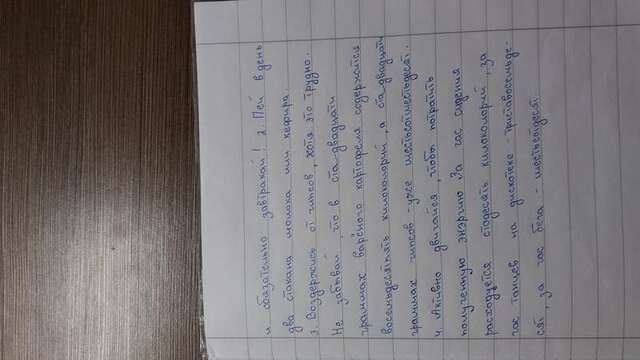 и обязательно завтракай! 2. Пей в день
два стакана молока или кефира.
3. Воздержись от чипсов, хотя это трудно.
Не забывай, что в ста двадцати
граммах варёного картофеля содержатся
восемьдесятпять килокалорий, а ста двадцати
граммах чипсов - уже шестьсотшестьдесят.
4. Активно двигайся, чтобы потратить
полученную энэргию. За час сидения
расходуется стодесять килокалорий, за
час танцев на дискотеке - триставосемьде-
сят, за час бега - шестьсотдесят.